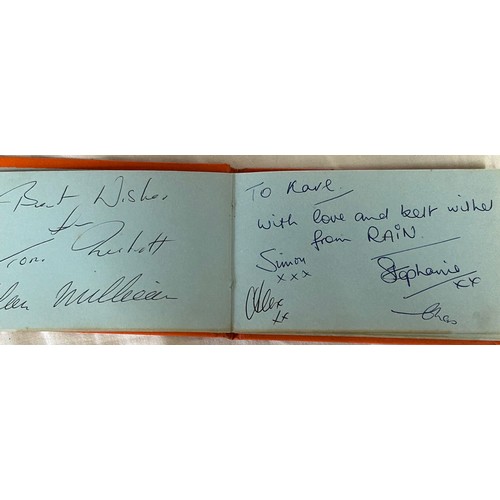 Best Wishes
Tom
Alan Milligan
To Karl
with love and best wishes
from RAIN
Simon
xxx
Stephanie
xx
Alex
xx
Chas